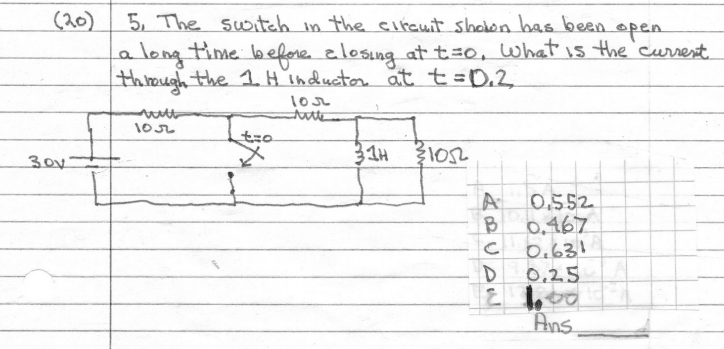 (20) 5, The switch in the circuit shown has been open
a long time before closing at t=0. What is the current
through the 1 H inductor at t=0.2
10Ω
10Ω
t=0
30V
1H
10Ω
A 0.552
B 0.467
C 0.631
D 0.25
E 1.00
Ans